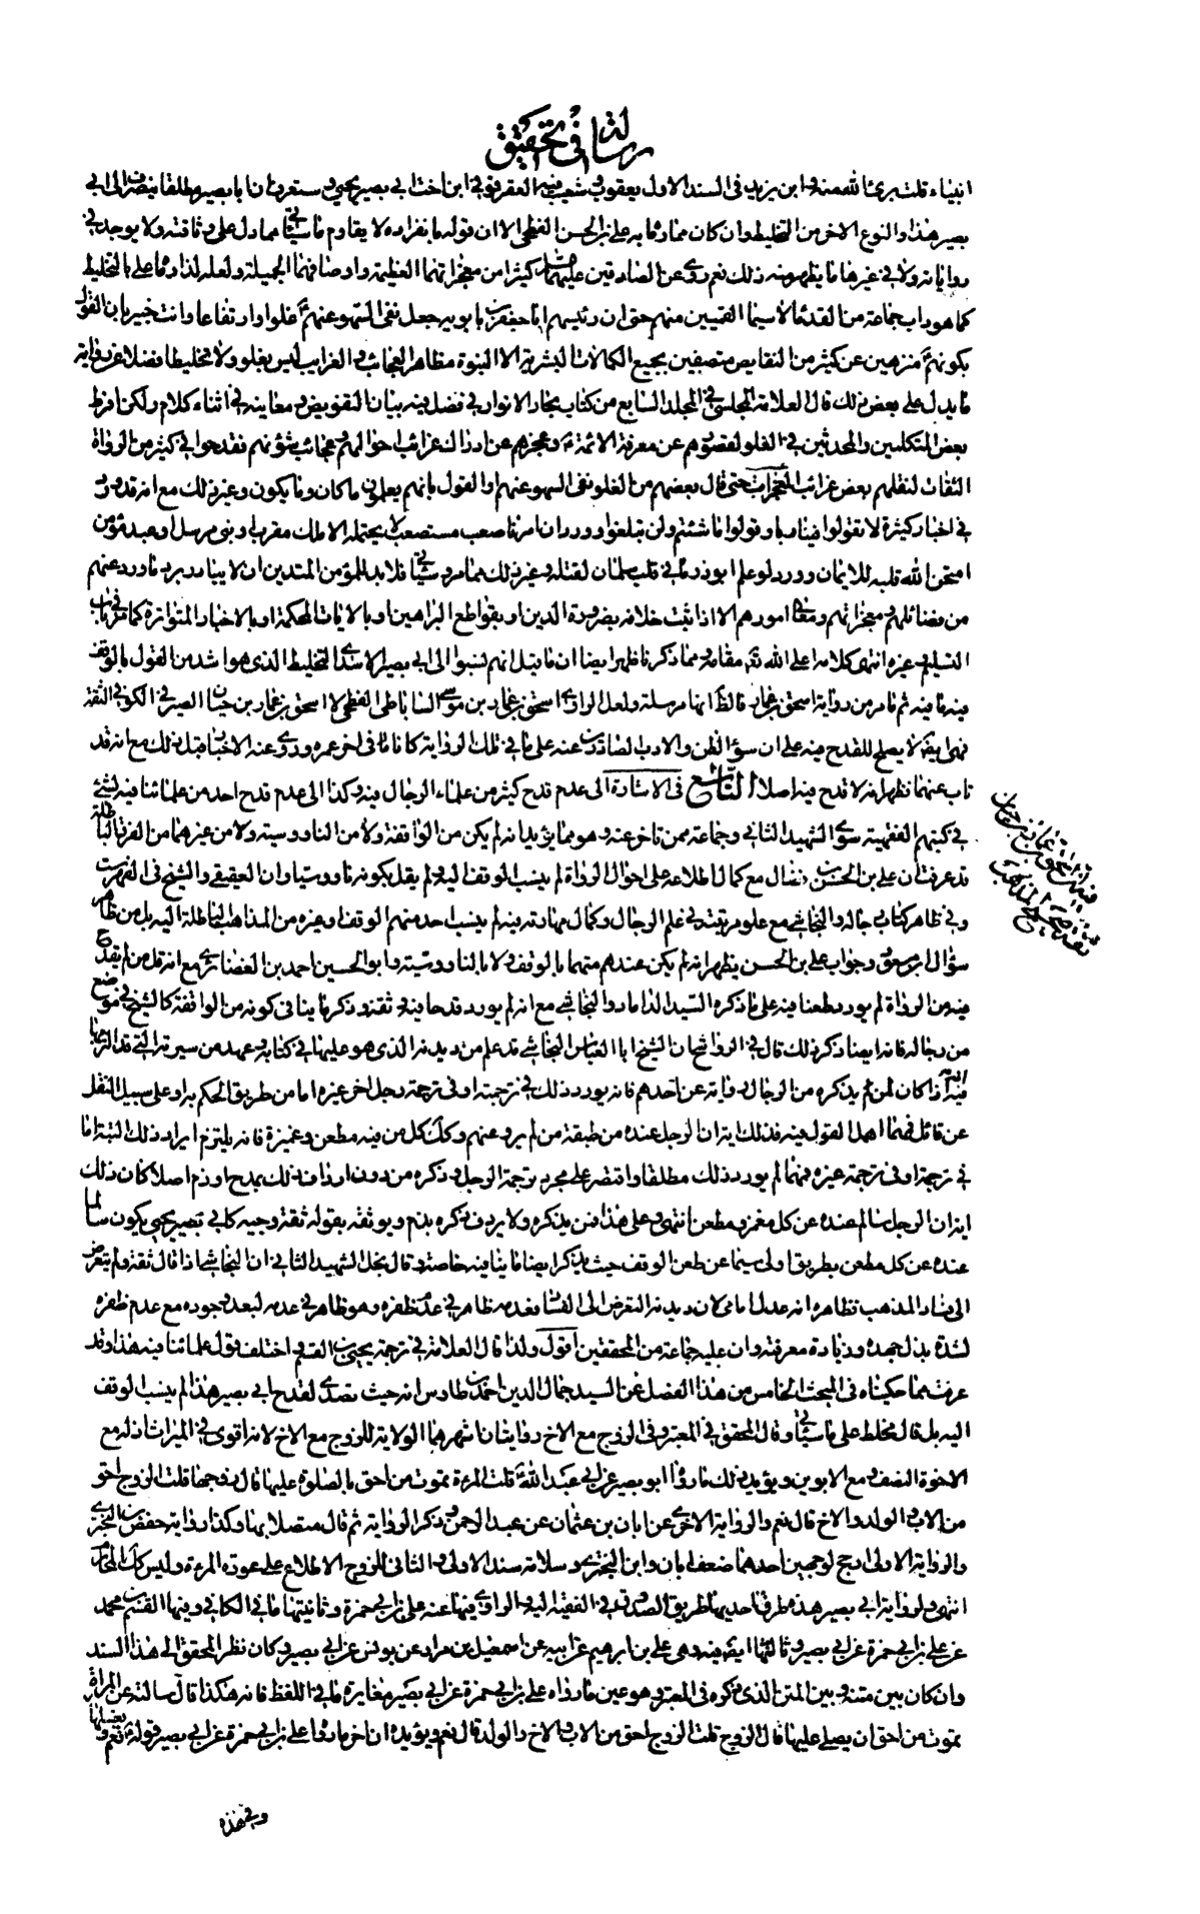 رسالة في تحقيق
انبياء قلت برئ الله منه و ابن يزيد في السند الاول يعقوب و شعيب هو العقرقوفي ابن اخت ابي بصير يحيى و ستعرف ان ابا بصير مطلقا ينصرف الى ابي
بصير هذا و النوع الاخر من التخليط و ان كان مما رماه به علي بن الحسن الفطحي الا ان قوله بانفراده لا يقاوم ما سيأتي مما دل على وثاقته و لا يوجد في
رواياته و لا في غيرها ما يظهر منه ذلك نعم روى عن الصادقين عليهما السلام كثيرا من معجزاتهما العظيمة و اوصافهما الجميلة و لعله لذا رماه علي بالتخليط
كما هو داب جماعة من القدماء لا سيما القميين منهم حتى ان رئيسهم ابا جعفر بن بابويه جعل نفي السهو عنهم غلوا و ارتفاعا و انت خبير بان القول
بكونهم منزهين عن كثير من النقايص متصفين بجميع الكمالات البشرية الا النبوة مظاهر العجائب و الغرايب ليس بغلو و لا تخليط فضلا عن رواية
ما يدل على بعض ذلك قال العلامة المجلسي في المجلد السابع من كتاب بحار الانوار في فصل فيه بيان التفويض و معانيه في اثناء كلام و لكن افرط
بعض المتكلمين و المحدثين في الغلو لقصورهم عن معرفة الائمة و عجزهم عن ادراك غرائب احوالهم و عجائب شؤنهم فقدحوا في كثير من الرواة
الثقات لنقلهم بعض غرائب المعجزات حتى قال بعضهم من الغلو نفي السهو عنهم او القول بانهم يعلمون ما كان و ما يكون و غير ذلك مع انه قد ورد
في اخبار كثيرة لا تقولوا فينا ربا و قولوا ما شئتم و لن تبلغوا و ورد ان امرنا صعب مستصعب لا يحتمله الا ملك مقرب او نبي مرسل او عبد مؤمن
امتحن الله قلبه للايمان و ورد لو علم ابو ذر ما في قلب سلمان لقتله و غير ذلك مما مر و سيأتي فلا بد للمؤمن المتدين ان لا يبادر برد ما ورد عنهم
من فضائلهم و معجزاتهم و معالي امورهم الا اذا ثبت خلافه بضرورة الدين او بقواطع البراهين او بالايات المحكمة او بالاخبار المتواترة كما مر في باب
التسليم و غيره انتهى كلامه اعلى الله تعم مقامه و مما ذكر ظهر ايضا ان ما قيل انهم نسبوا الى ابي بصير الاسدي التخليط الذي هو اشد من القول بالوقف
فيه ما فيه ثم ما مر من رواية اسحق بن عمار فالظ انها مرسلة و لعل الراوي اسحق بن عمار بن موسى الساباطي الفطحي لا اسحق بن عمار بن حيان الصيرفي الكوفي الثقة
فهي ايضا لا يصلح للقدح فيه على ان سوء الظن و الادب الصادرين عنه على ما في تلك الرواية كانا ما في اخر عمره و روى عنه الاخبار قبل ذلك مع انه قد
تاب عنهما فظهر انه لا قدح فيه اصلا التاسع في الاشارة الى عدم قدح كثير من علماء الرجال فيه و كذا الى عدم قدح احد من علمائنا فيه بشئ
في كتبهم الفقهية سوى الشهيد الثاني و جماعة ممن تاخر عنه و هو مما يؤيد انه لم يكن من الواقفة و لا من الناووسية و لا من غيرهما من الفرق الباطلة
قد عرفت ان علي بن الحسن بن فضال مع كمال اطلاعه على احوال الرواة لم ينسب الوقف اليه و لم يقل بكونه ناووسيا و ان العقيقي و الشيخ في الفهرست
و في ظاهر كتابي رجاله و النجاشي مع علو مرتبته في علم الرجال و كمال مهارته فيه لم ينسب احد منهم الوقف او غيره من المذاهب الباطلة اليه بل من ظاهر
سؤال ابن مسعود و جواب علي بن الحسن يظهر انه لم يكن عندهم متهما بالوقف و لا بالناووسية و ابو الحسين احمد بن الغضائري مع انه قل من لم يقدح
فيه من الرواة لم يورد طعنا فيه على ما ذكره السيد الداماد و النجاشي مع انه لم يورد قدحا فيه وثقه و ذكر ما ينافي كونه من الواقفة كالشيخ في موضع
من رجاله فانه ايضا ذكر ذلك قال في الرواشح ان الشيخ ابا العباس النجاشي قد علم من ديدنه الذي هو عليه في كتابه و عهد من سيرته التي قد التزمها
فيه انه اذا كان لمن يذكره من الرجال رواية عن احدهم فانه يورد ذلك في ترجمته او في ترجمة رجل اخر غيره اما من طريق الحكم به او على سبيل النقل
عن قائل فمهما اهمل القول فيه فذلك اية ان الرجل عنده من طبقة من لم يرو عنهم و كك كل من فيه مطعن و غميزة فانه يلتزم ايراد ذلك البتة اما
في ترجمته او في ترجمة غيره فمهما لم يورد ذلك مطلقا و اقتصر على مجرد ترجمة الرجل و ذكره من دون ارداف ذلك بمدح او ذم اصلا كان ذلك
اية ان الرجل سالم عنده عن كل مغمز و مطعن انتهى و على هذا فمن يذكره و لا يردف ذكره بذم و يوثقه بقوله ثقة وجيه كابي بصير يحيى يكون سالما
عنده عن كل مطعن بطريق اولى سيما عن طعن الوقف حيث يذكر ايضا ما ينافيه خاصة و قال نجل الشهيد الثاني ان النجاشي اذا قال ثقة و لم يتعرض
الى فساد المذهب فظاهره انه عدل امامي لان ديدنه التعرض الى الفساد فعدمه ظاهر في عدم ظفره و هو ظاهر في عدمه لبعد وجوده مع عدم ظفره
لشدة بذل جهده و زيادة معرفته و ان عليه جماعة من المحققين اقول و لذا قال العلامة في ترجمة يحيى بن القسم اختلف قول علمائنا فيه هذا و قد
عرفت مما حكيناه في المبحث الخامس من هذا الفصل عن السيد جمال الدين احمد بن طاوس انه حيث تصدى لقدح ابي بصير هذا لم ينسب الوقف
اليه بل قال مخلط على ما سيأتي و قال المحقق في المعتبر و في الزوج مع الاخ روايتان اشهرهما الولاية للزوج مع الاخ لانه اقوى في الميراث اذ له مع
الاخوة النصف و مع الابوين و يؤيد ذلك ما رواه ابو بصير عن ابي عبد الله قلت المرءة تموت من احق بالصلوة عليها قال زوجها قلت الزوج احق
من الاب و الولد و الاخ قال نعم و الرواية الاخرى عن ابان بن عثمان عن عبد الرحمن و ذكر الرواية ثم قال متصلا بها و كذا رواية حفص بن البختري
و الرواية الاولى ارجح لوجهين احدهما ضعف ابان و ابن البختري و سلامة سند الاولى و الثاني للزوج الاطلاع على عورة المرءة و ليس كك المحارم
انتهى و لرواية ابي بصير هذه طرق احديها طريق الصدوق في الفقيه اليه و الراوي فيها عنه علي بن ابي حمزة و ثانيتها ما في الكافي و فيها القسم بن محمد
عن علي بن ابي حمزة عن ابي بصير و ثالثها ايضا فيه و هي علي بن ابرهيم عن ابيه عن اسمعيل بن مرار عن يونس عن ابي بصير و كان نظر المحقق الى هذا السند
و ان كان بين متنه و بين المتن الذي ذكره في المعتبر و هو عين ما رواه علي بن ابي حمزة عن ابي بصير مغايرة ما في اللفظ فانه هكذا قال سالته عن المراة
تموت من احق ان يصلي عليها قال الزوج قلت الزوج احق من الاب و الاخ و الولد قال نعم و يؤيده ان اخر ما رواه علي بن ابي حمزة عن ابي بصير قوله نعم و يغسلها
و في هذه